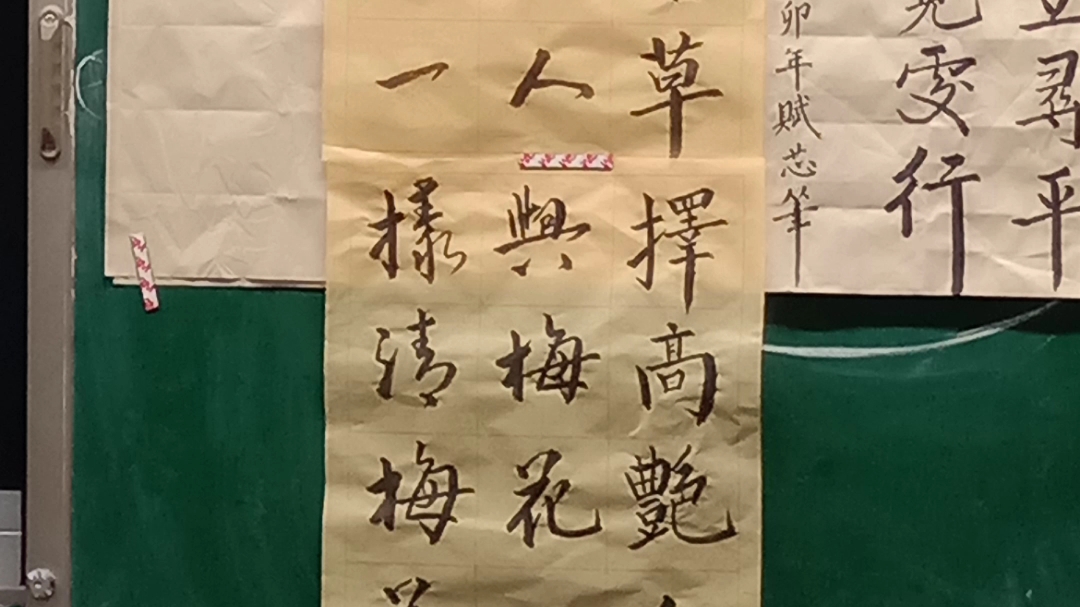 立尋平
免雯行
卯年賦芯筆
草擇高艷
人與梅花
一樣清梅